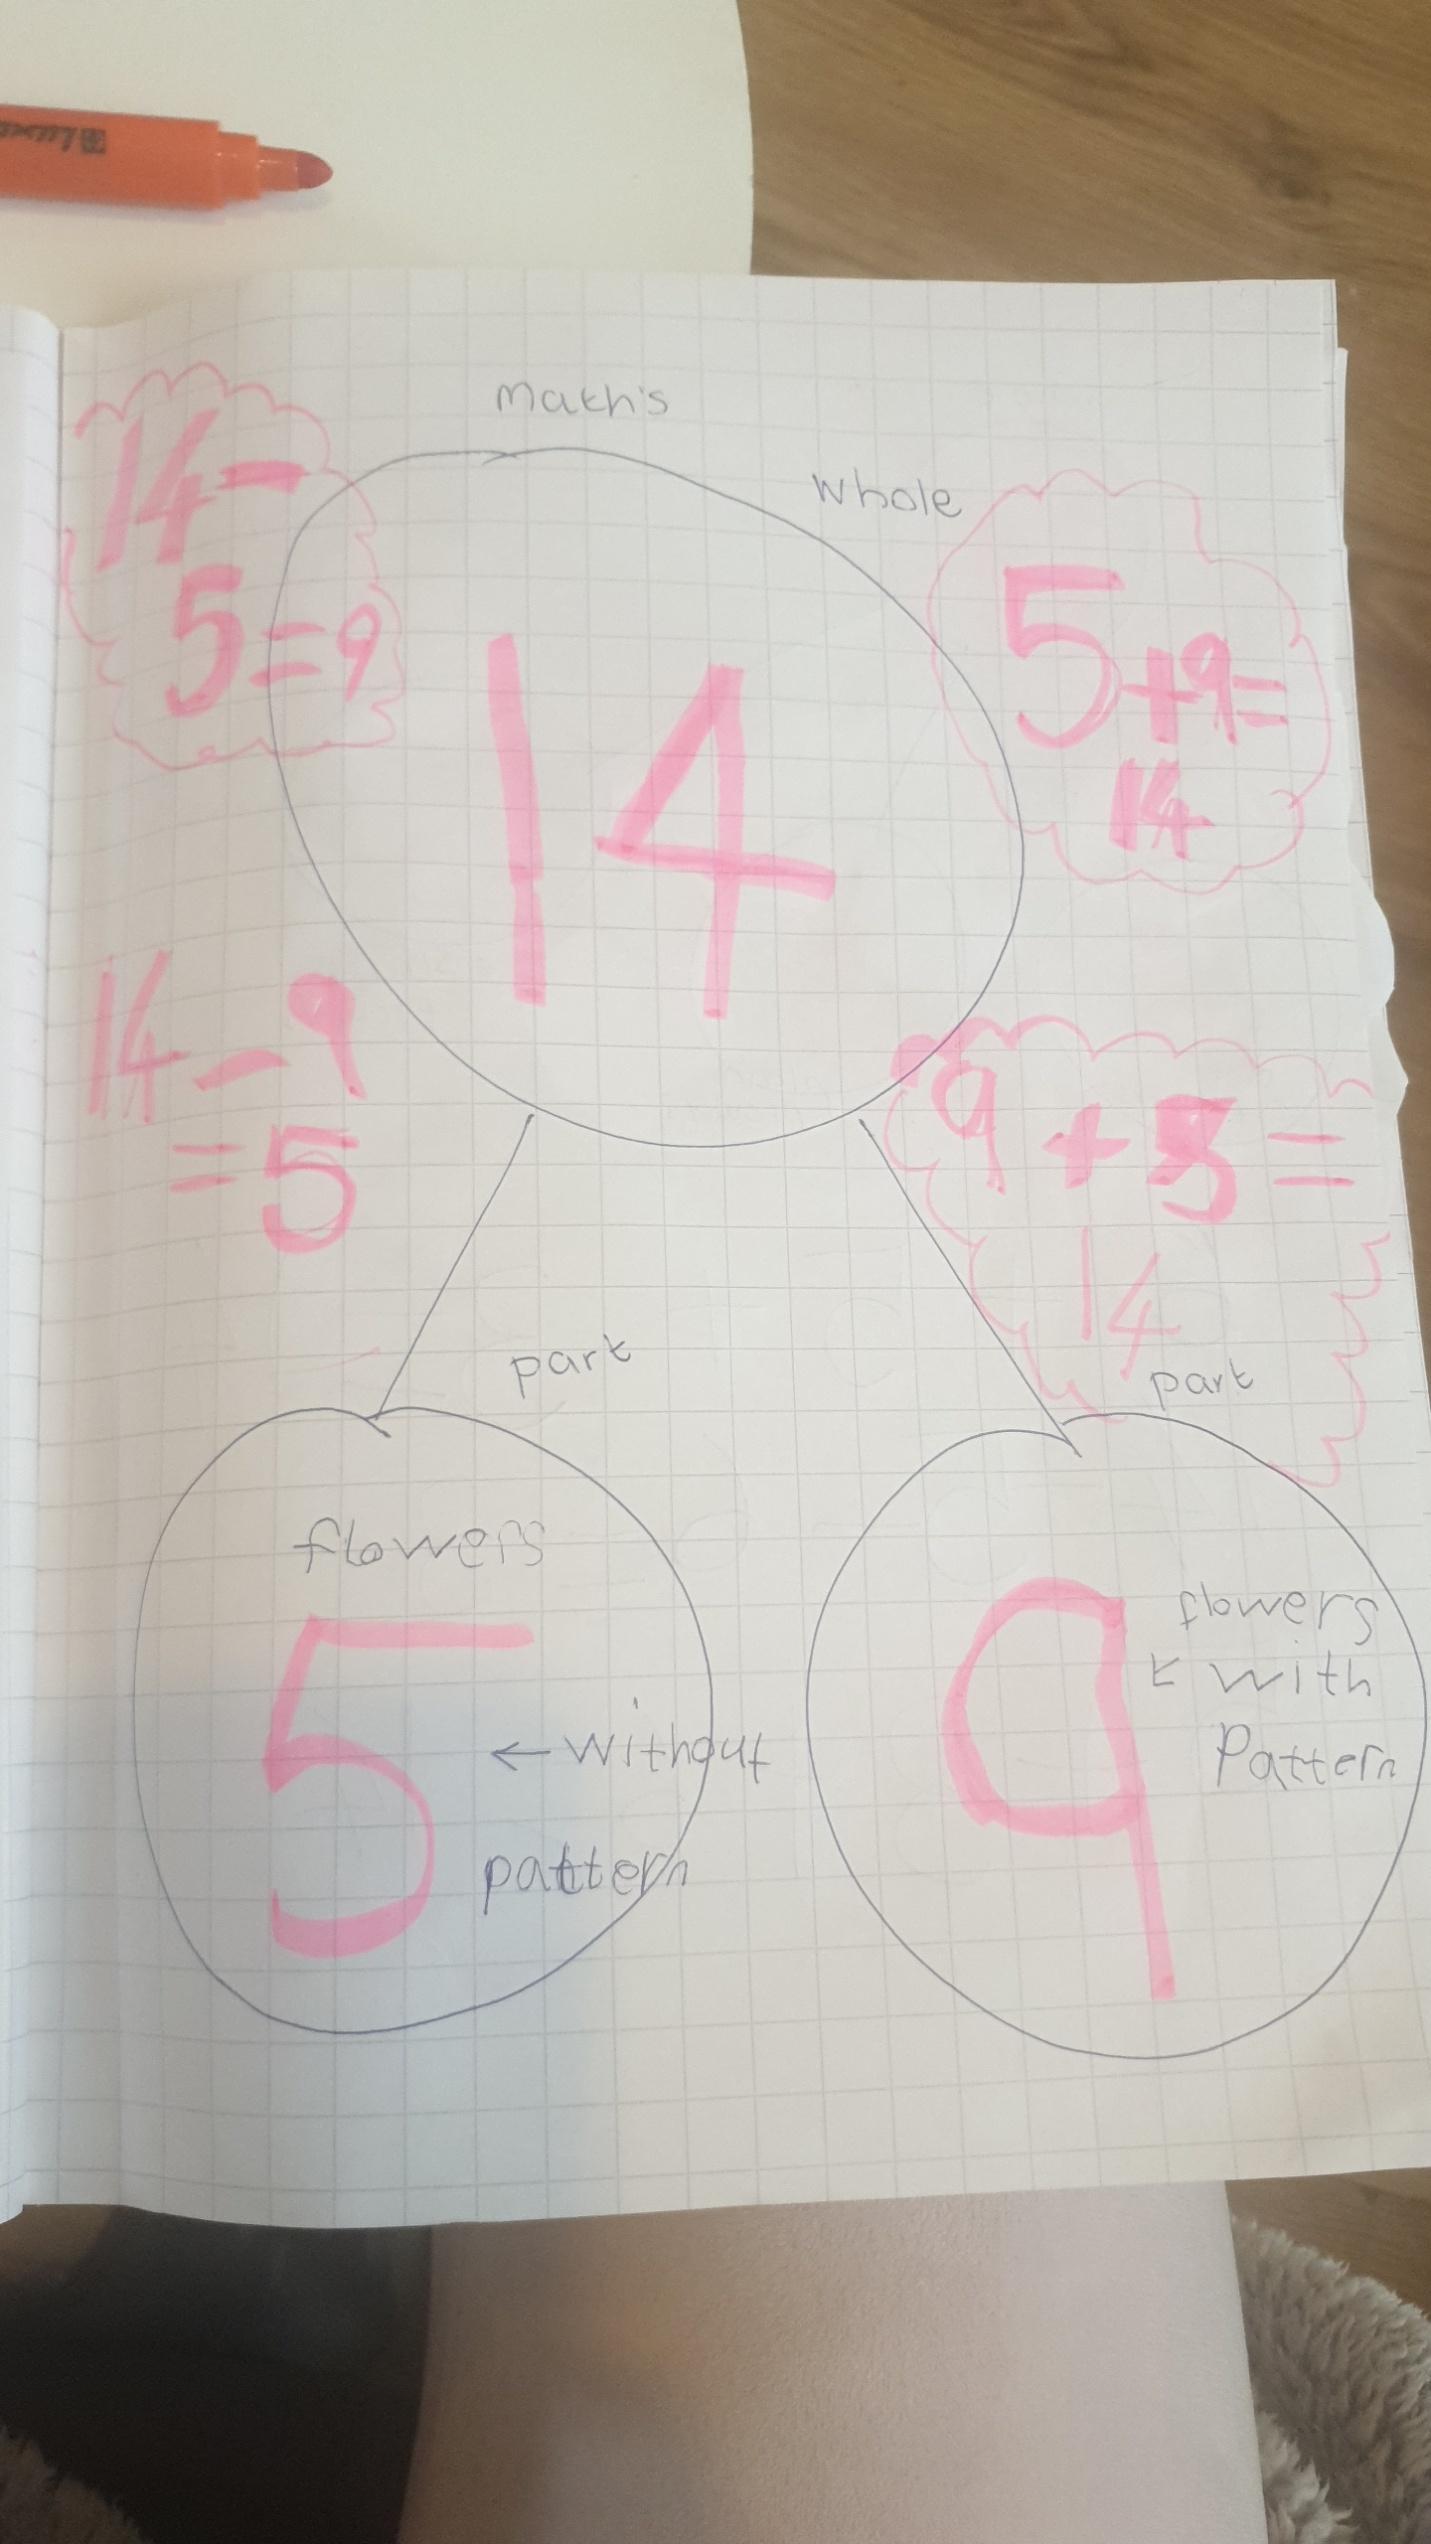 Math's
Whole
14-
5=9
5+9=
14
14
14-9
=5
9+5=
14
part
part
flowers
5
← without
pattern
flowers
9 ← with
Pattern